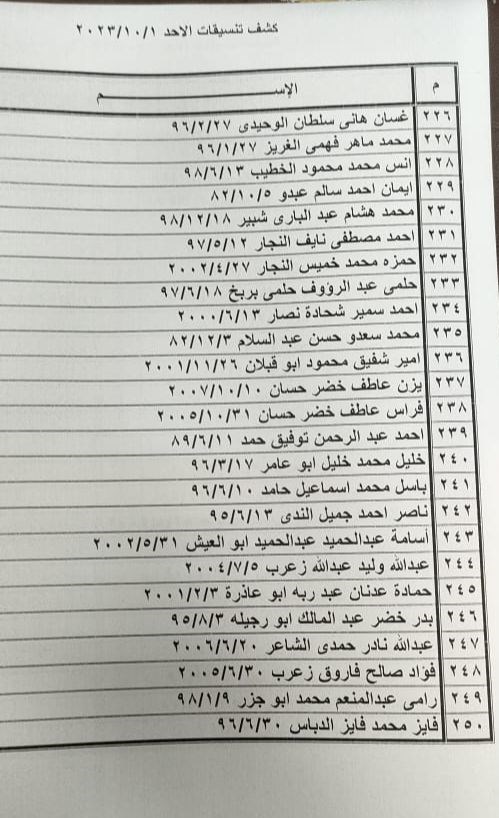 كشف تنسيقات الاحد ٢٠٢٣/١٠/١
م الإســـــــم
٢٢٦ غسان هانى سلطان الوحيدى ٩٦/٢/٢٧
٢٢٧ محمد ماهر فهمى الغريز ٩٦/١/٢٧
٢٢٨ انس محمد محمود الخطيب ٩٨/٦/١٣
٢٢٩ ايمان احمد سالم عبدو ٨٢/١٠/٥
٢٣٠ محمد هشام عبد البارى شبير ٩٨/١٢/١٨
٢٣١ احمد مصطفى نايف النجار ٩٧/٥/١٢
٢٣٢ حمزه محمد خميس النجار ٢٠٠٢/٤/٢٧
٢٣٣ حلمى عبد الرؤوف حلمى بربخ ٩٧/٦/١٨
٢٣٤ احمد سمير شحادة نصار ٢٠٠٠/٦/١٣
٢٣٥ محمد سعدو حسن عبد السلام ٨٢/١٢/٣
٢٣٦ امير شفيق محمود ابو قبلان ٢٠٠١/١١/٢٦
٢٣٧ يزن عاطف خضر حسان ٢٠٠٧/١٠/١٠
٢٣٨ فراس عاطف خضر حسان ٢٠٠٥/١٠/٣١
٢٣٩ احمد عبد الرحمن توفيق حمد ٨٩/٦/١١
٢٤٠ خليل محمد خليل ابو عامر ٩٦/٣/١٧
٢٤١ باسل محمد اسماعيل حامد ٩٦/٦/١٠
٢٤٢ ناصر احمد جميل الندى ٩٥/٦/١٣
٢٤٣ أسامة عبدالحميد عبدالحميد ابو العيش ٢٠٠٢/٥/٣١
٢٤٤ عبدالله وليد عبدالله زعرب ٢٠٠٤/٧/٥
٢٤٥ حمادة عدنان عبد ربه ابو عاذرة ٢٠٠١/٢/٣
٢٤٦ بدر خضر عبد المالك ابو رجيله ٩٥/٨/٣
٢٤٧ عبدالله نادر حمدى الشاعر ٢٠٠٦/٦/٢٠
٢٤٨ فؤاد صالح فاروق زعرب ٢٠٠٥/٦/٣٠
٢٤٩ رامى عبدالمنعم محمد ابو جزر ٩٨/١/٩
٢٥٠ فايز محمد فايز الدباس ٩٦/٦/٣٠